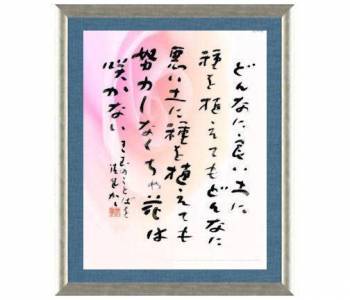 どんなに良い土に
種を植えてもどんなに
悪い土に種を植えても
努力しなくちゃ花は
咲かない